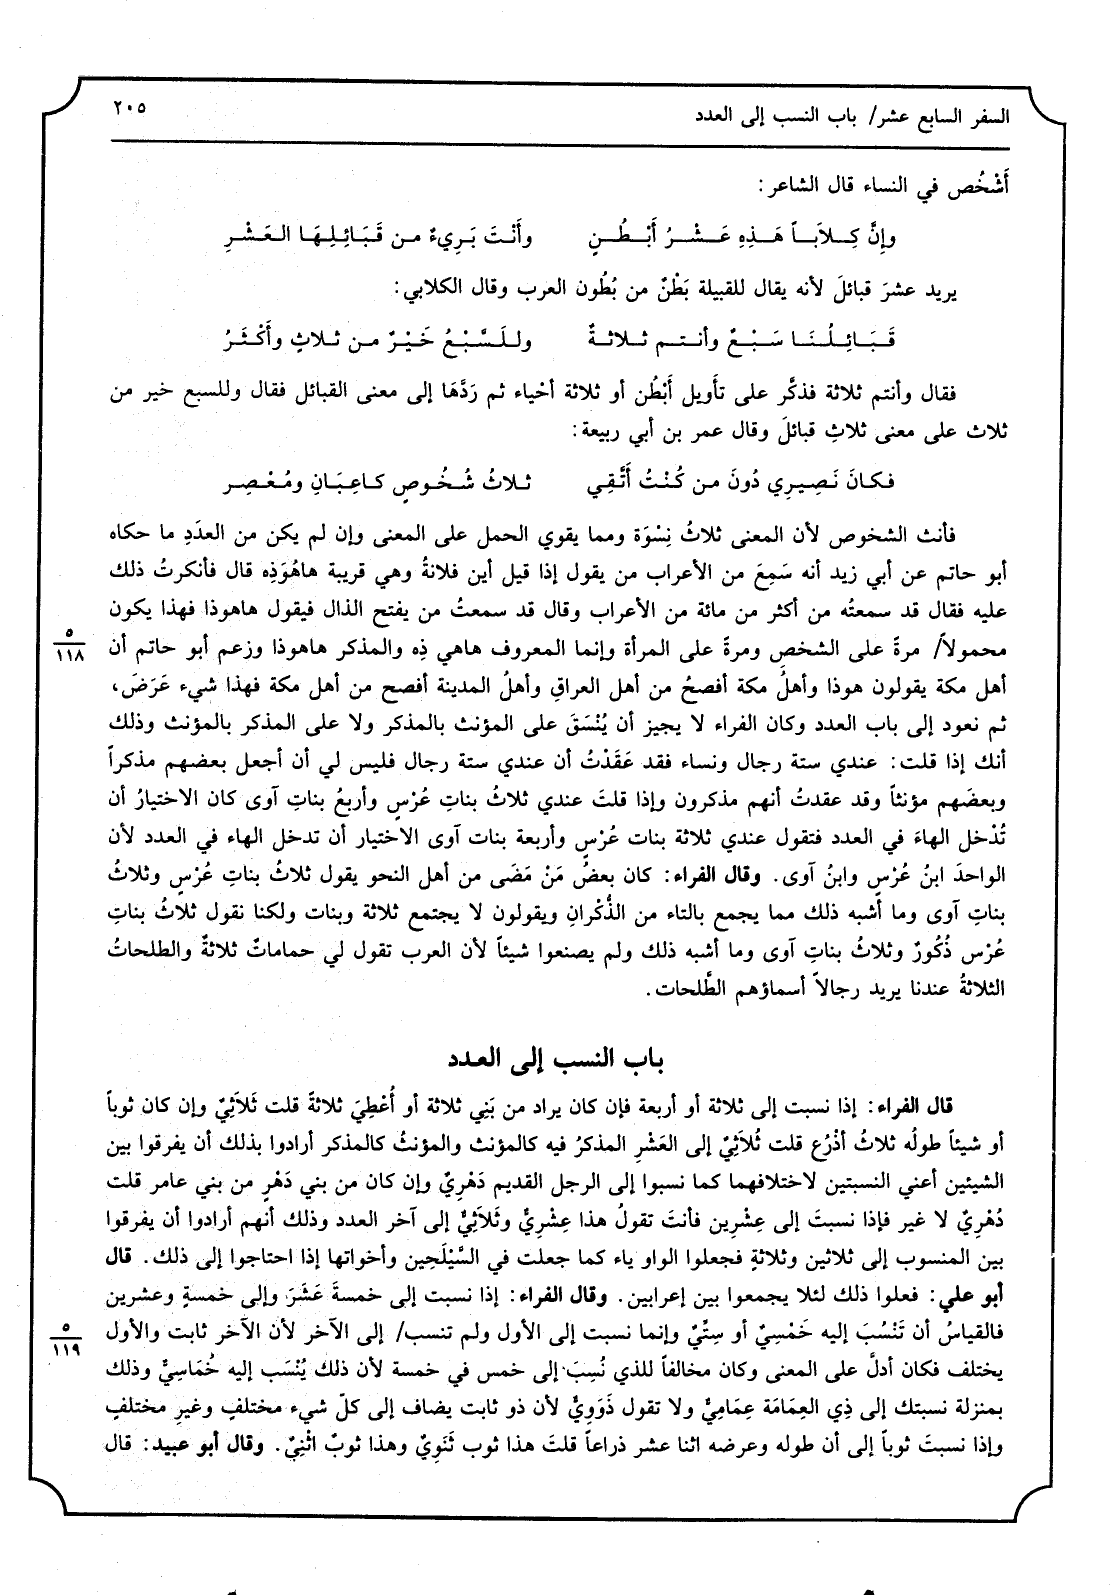 السفر السابع عشر/ باب النسب إلى العدد
٢٠٥
أَشْخُص في النساء قال الشاعر:
وإنَّ كِلاَبـاً هَـذِهِ عَـشْـرُ أَبْـطُـنٍ وأَنْتَ بَرِيءٌ من قَبَائِلِهَا العَشْرِ
يريد عشرَ قبائلَ لأنه يقال للقبيلة بَطْنٌ من بُطُون العرب وقال الكلابي:
قَـبَـائِـلُـنَـا سَـبْـعٌ وأنـتـم ثـلاثـةٌ ولـلـسَّـبْـعُ خَـيْـرٌ مـن ثـلاثٍ وأَكْـثَـرُ
فقال وأنتم ثلاثة فذكَّر على تأويل أَبْطُن أو ثلاثة أحْياء ثم رَدَّهَا إلى معنى القبائل فقال وللسبع خير من
ثلاث على معنى ثلاثِ قبائلَ وقال عمر بن أبي ربيعة:
فـكـانَ نَـصِـيرِي دُونَ مـن كُـنْـتُ أَتَّـقِـي ثـلاثُ شُـخُـوصٍ كـاعِـبَـانِ ومُـعْـصِـر
فأنث الشخوص لأن المعنى ثلاثُ نِسْوَة ومما يقوي الحمل على المعنى وإن لم يكن من العدَدِ ما حكاه
أبو حاتم عن أبي زيد أنه سَمِعَ من الأعراب من يقول إذا قيل أين فلانةُ وهي قريبة هاهُوَذِه قال فأنكرتُ ذلك
عليه فقال قد سمعتُه من أكثر من مائة من الأعراب وقال قد سمعتُ من يفتح الذال فيقول هاهوذا فهذا يكون
محمولاً/ مرةً على الشخصِ ومرةً على المرأة وإنما المعروف هاهي ذِه والمذكر هاهوذا وزعم أبو حاتم أن
٥
١١٨
أهل مكة يقولون هوذا وأهلُ مكة أفصحُ من أهل العراقِ وأهلُ المدينة أفصح من أهل مكة فهذا شيء عَرَضَ،
ثم نعود إلى باب العدد وكان الفراء لا يجيز أن يُنْسَقَ على المؤنث بالمذكر ولا على المذكر بالمؤنث وذلك
أنك إذا قلت: عندي ستة رجال ونساء فقد عَقَدْتُ أن عندي ستة رجال فليس لي أن أجعل بعضهم مذكراً
وبعضَهم مؤنثاً وقد عقدتُ أنهم مذكرون وإذا قلتَ عندي ثلاثُ بناتِ عُرْسٍ وأربعُ بناتِ آوى كان الاختيارُ أن
تُدْخل الهاءَ في العدد فتقول عندي ثلاثة بنات عُرْسٍ وأربعة بنات آوى الاختيار أن تدخل الهاء في العدد لأن
الواحدَ ابنُ عُرْسٍ وابنُ آوى. وقال الفراء: كان بعضُ مَنْ مَضَى من أهل النحو يقول ثلاثُ بناتِ عُرْسٍ وثلاثُ
بناتِ آوى وما أشبه ذلك مما يجمع بالتاء من الذُّكْرانِ ويقولون لا يجتمع ثلاثة وبنات ولكنا نقول ثلاثُ بناتِ
عُرْس ذُكُورٌ وثلاثُ بناتِ آوى وما أشبه ذلك ولم يصنعوا شيئاً لأن العرب تقول لي حماماتٌ ثلاثةٌ والطلحاتُ
الثلاثةُ عندنا يريد رجالاً أسماؤهم الطَّلحات.
باب النسب إلى العدد
قال الفراء: إذا نسبت إلى ثلاثة أو أربعة فإن كان يراد من بَنِي ثلاثة أو أُعْطِيَ ثلاثةً قلت ثَلاَثِيٌ وإن كان ثوباً
أو شيئاً طولُه ثلاثُ أذْرُع قلت ثُلاَثِيٌ إلى العَشْرِ المذكرُ فيه كالمؤنث والمؤنثُ كالمذكر أرادوا بذلك أن يفرقوا بين
الشيئين أعني النسبتين لاختلافهما كما نسبوا إلى الرجل القديم دَهْرِيٌ وإن كان من بني دَهْرٍ من بني عامر قلت
دُهْرِيٌ لا غير فإذا نسبتَ إلى عِشْرِين فأنتَ تقولُ هذا عِشْرِيٌّ وثَلاَثِيٌّ إلى آخر العدد وذلك أنهم أرادوا أن يفرقوا
بين المنسوب إلى ثلاثين وثلاثةٍ فجعلوا الواو ياء كما جعلت في السَّيْلَحِين وأخواتها إذا احتاجوا إلى ذلك. قال
أبو علي: فعلوا ذلك لئلا يجمعوا بين إعرابين. وقال الفراء: إذا نسبت إلى خمسةَ عَشَرَ وإلى خمسةٍ وعشرين
فالقياسُ أن تَنْسُبَ إليه خَمْسِيٌ أو سِتِّيٌ وإنما نسبت إلى الأول ولم تنسب/ إلى الآخر لأن الآخر ثابت والأول
٥
١١٩
يختلف فكان أدلَّ على المعنى وكان مخالفاً للذي نُسِبَ إلى خمس في خمسة لأن ذلك يُنْسَب إليه خُمَاسِيٌّ وذلك
بمنزلة نسبتك إلى ذِي العِمَامَة عِمَامِيٌّ ولا تقول ذَوَوِيٌّ لأن ذو ثابت يضاف إلى كلّ شيء مختلفٍ وغيرِ مختلفٍ
وإذا نسبتَ ثوباً إلى أن طوله وعرضه اثنا عشر ذراعاً قلتَ هذا ثوب ثَنَوِيٌ وهذا ثوبٌ اثْنِيٌ. وقال أبو عبيد: قال